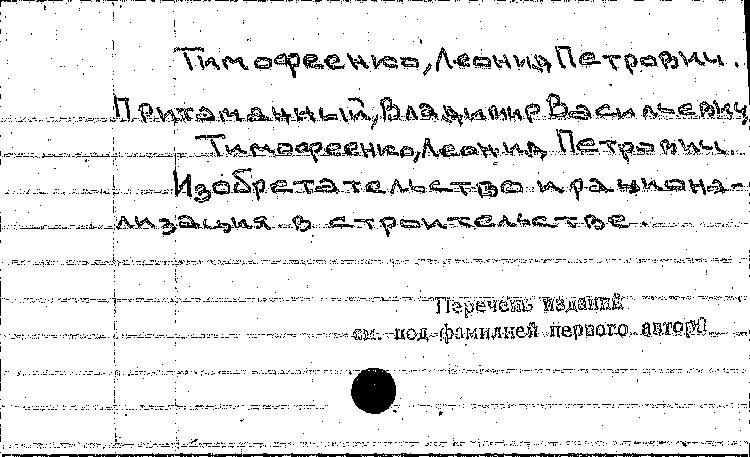 Тимофеенко, Леонид Петрович.
Притаманный, Владимир Васильевич,
Тимофеенко, Леонид Петрович.
Изобретательство и рациона-
лизация в строительстве.
Перечень изданий
см. под фамилией первого автора